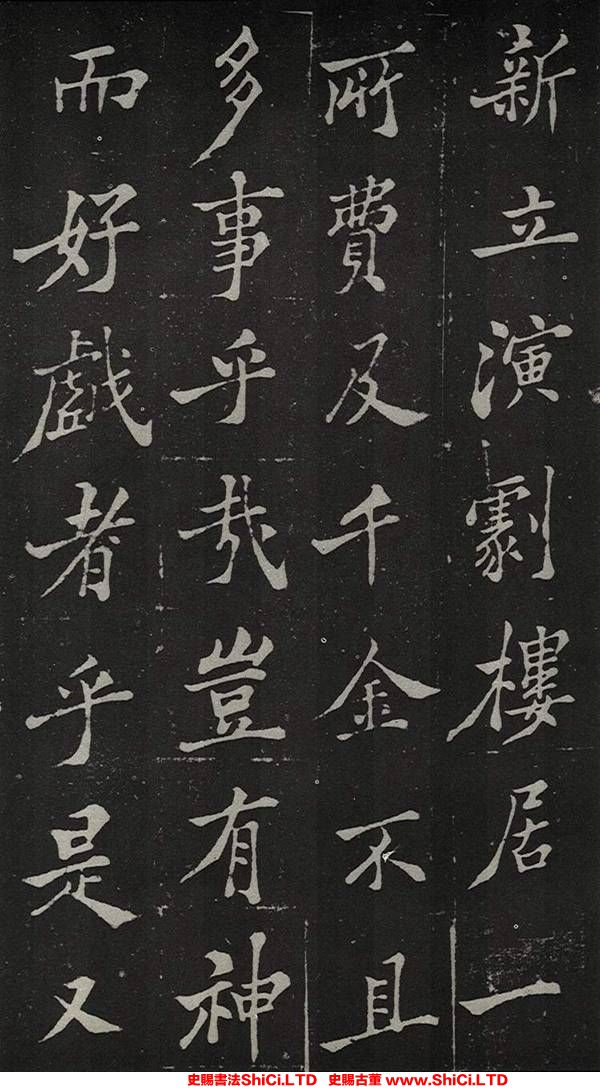 新立演劇樓居一
所費及千金不且
多事乎哉豈有神
而好戲者乎是又
史賜書法ShiCi.LTD 史賜古董 www.ShiCi.LTD